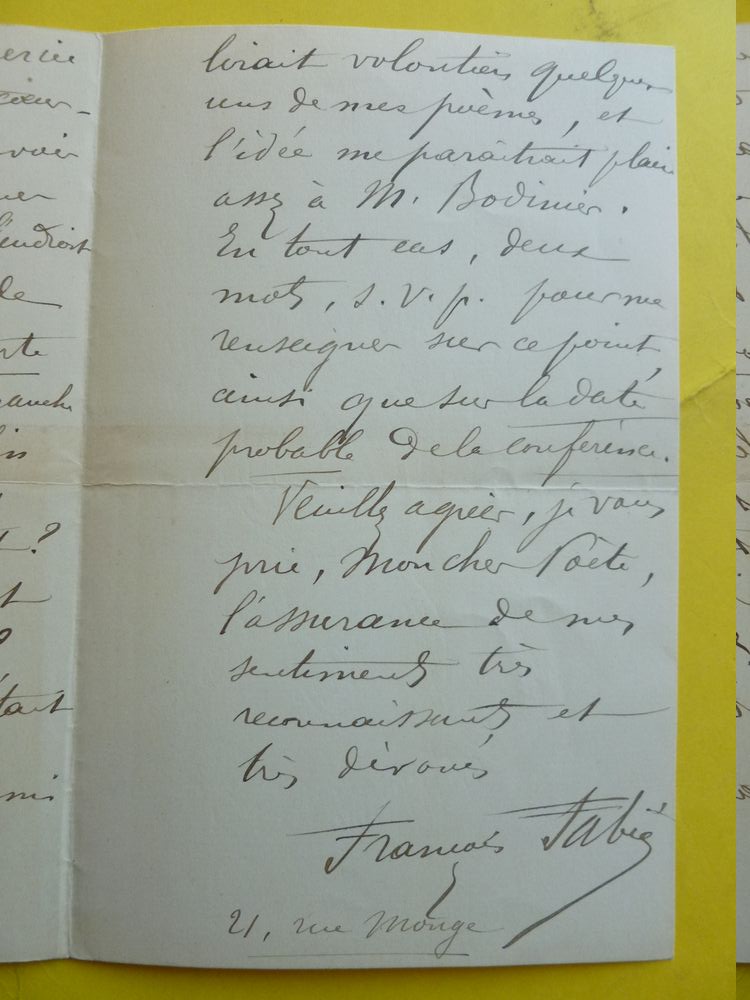 lirait volontiers quelques
uns de mes poèmes, et
l'idée me paraîtrait plaire
assez à M. Bodinier.
En tout cas, deux
mots, s. v. p. pour me
renseigner sur ce point,
ainsi que sur la date
probable de la conférence.
Veuillez agréer, je vous
prie, Mon cher Poète,
l'assurance de mes
sentiments très
reconnaissants et
très dévoués
François Fabié
21, rue Monge
voir
l'endroit
de